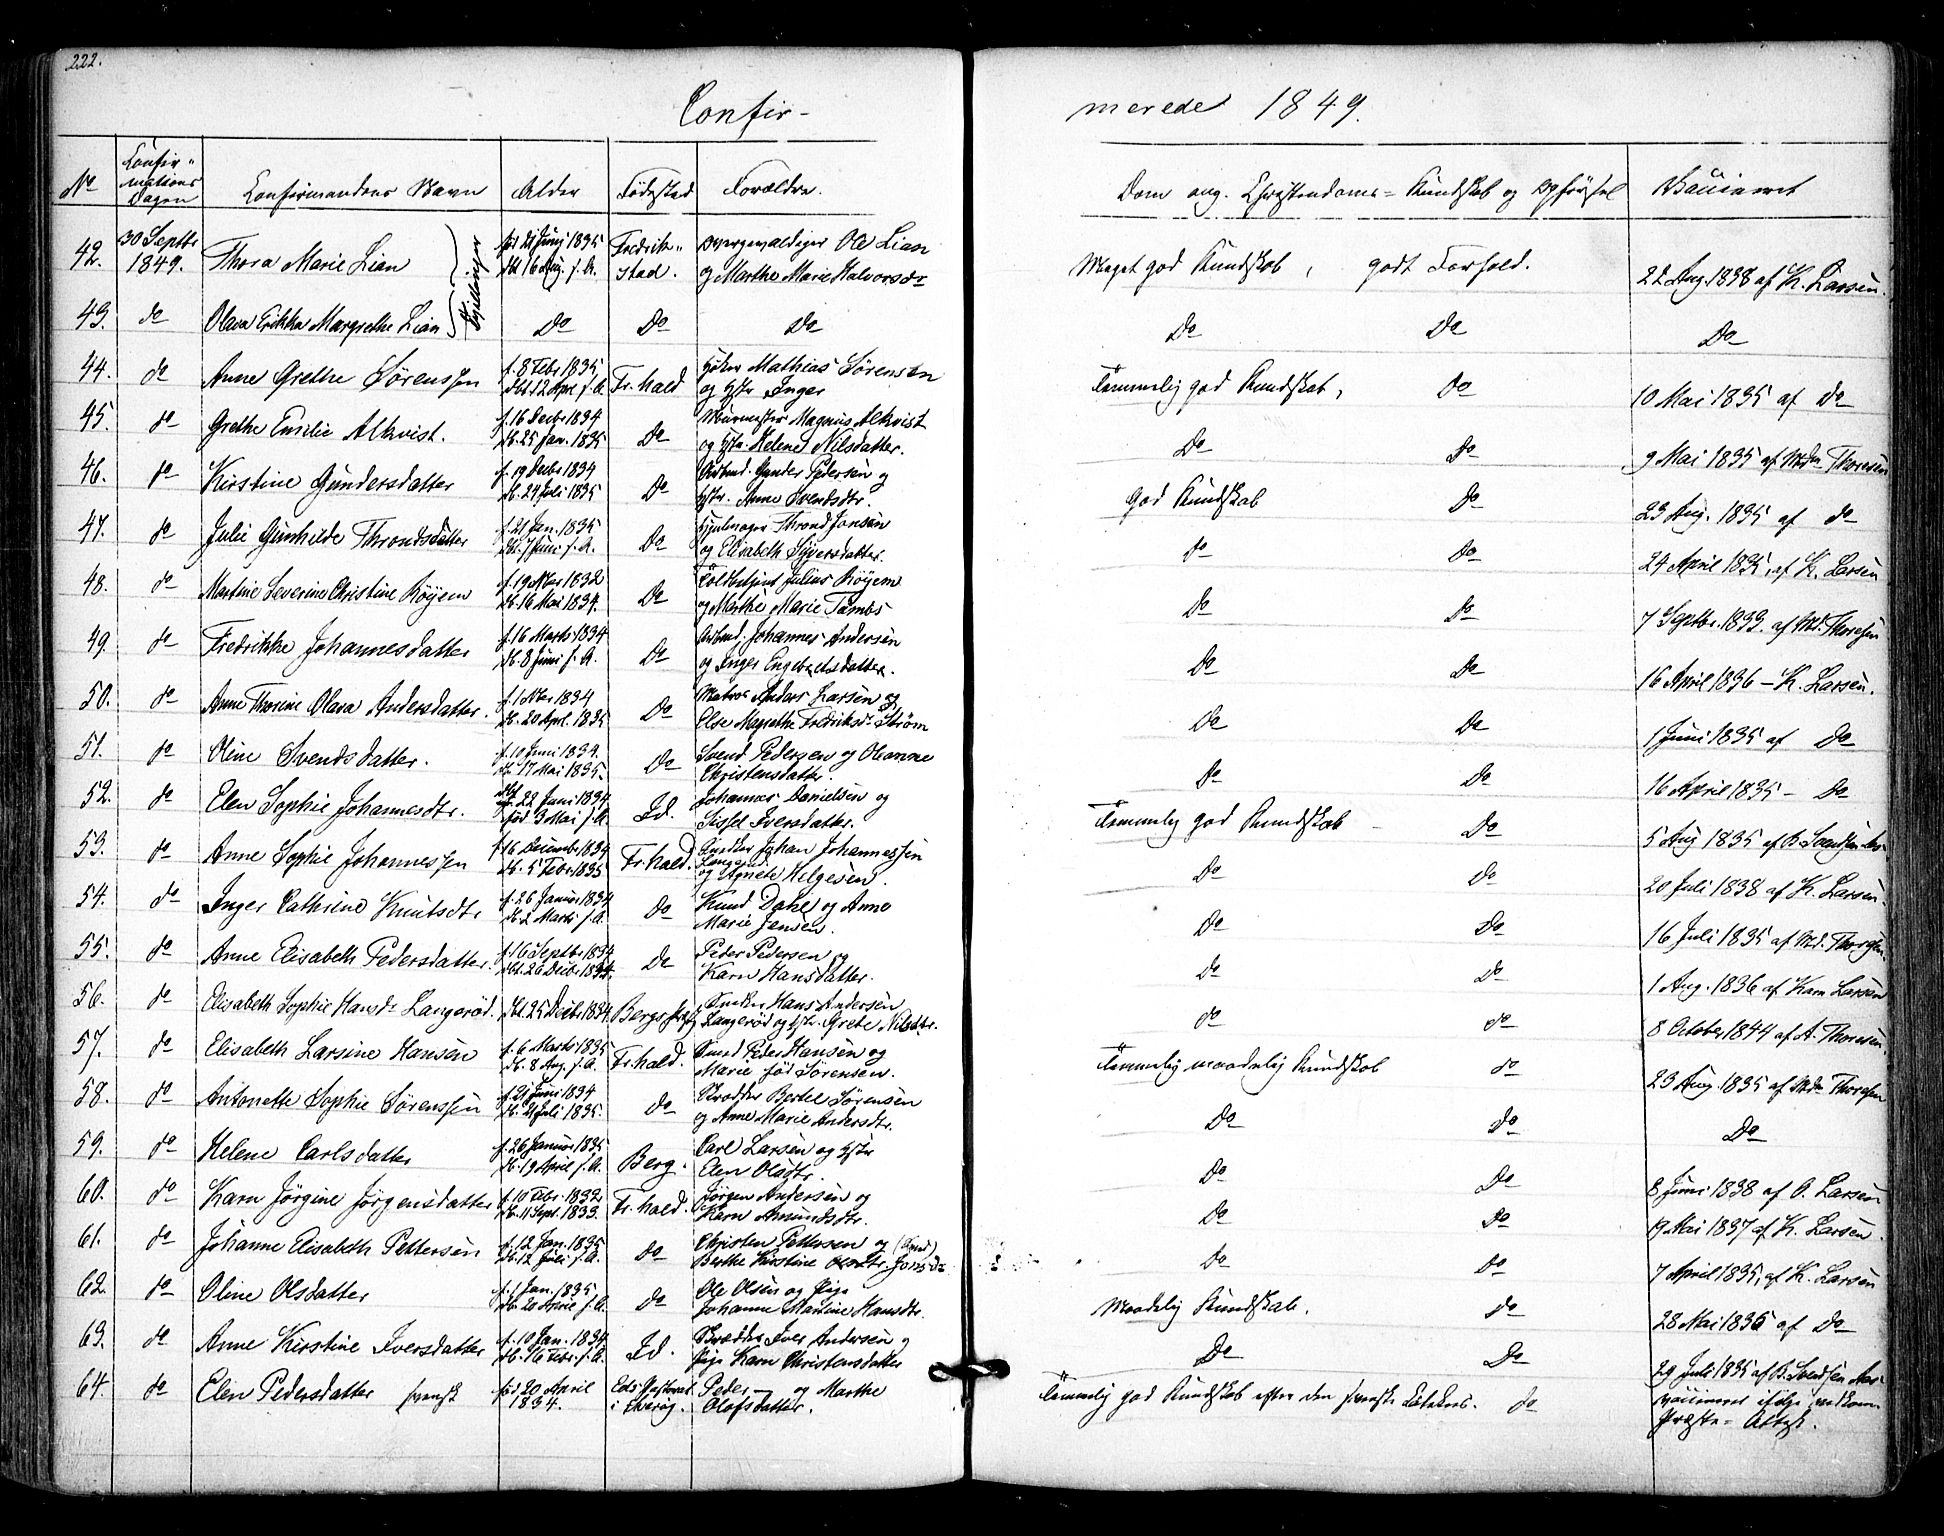 222.
Confir-
merede 1849.
No
Confir-
mations
Dagen
Confirmandens Navn
Alder
Fødested
Forældre.
Dom ang. Christendoms-Kundskab og Opførsel
Vaccineret
42. 30 Septbr 1849. Thora Marie Lian
fød 21 Junj 1835
dbt 16 Aug. s. A.
Fredrik-
stad.
Ole Lian
og Marthe Marie Halvorsdr
Meget god Kundskab, godt Forhold.
22 Aug. 1838 af K. Larsen.
Tvillinger
43. do Olava Erikka Margrethe Lian Do Do Do
Do Do Do
44. do Anne Grethe Sørenssen
f. 8 Febr 1835
dbt 12 Apr. s. A.
Fr.hald
Mathias Sørensen
og Hstr Inger
Temmelig god Kundskab, Do
10 Mai 1835 af Do
45. do Grethe Emilie Alkvist.
f. 16 Decbr 1834
db. 25 Jan. 1835
Do
Muurmester Magnus Alkvist
og Hstr. Helene Nilsdatter.
Do Do
9 Mai 1835 af Md. Thoresen
46. do Kirstine Gundersdatter
f. 19 Decbr 1834
db. 24 Juli 1835
Do
Arbmd. Gunder Pedersen og
Hstr. Anne Svendsdtr.
God Kundskab Do
23 Aug. 1835 af do
47. do Julie Gunhilde Throndsdatter
f. 21 Jan. 1835
db. 7 Juni s. A.
Do
Hjulmager Thrond Jonsen
og Elisabeth Syversdatter.
do Do
24 April 1835, af K. Larsen
48. do Martine Severine Christine Röyem
f. 19 Nbr 1832
db. 16 Mai 1834.
Do
Toldbetjent Julius Röyem
og Marthe Marie Tambs
Do Do
7 Septbr. 1833. af Md. Thoresen
49. do Fredrikke Johannesdatter
f. 16 Marts 1834
db. 8 Juni s. A.
Do
Arbmd. Johannes Andersen
og Inger Engebretsdatter.
Do Do
16 April 1836 - K. Larsen.
50. do Anne Thorine Olava Andersdatter.
f. 1 Nbr 1834
db. 20 Apl. 1835
Do
Matros Anders Larsen og
Else Megrethe Fredriksdr Strøm
Do Do
1 Juni 1835 af Do
51. do Oline Svendsdatter.
f. 10 Juni 1834.
db. 17 Mai 1835.
Do
Svend Pedersen og Oleanne
Christensdatter.
Do Do
16 April 1835 - Do
52. do Elen Sophie Johannesdtr.
dbt 22 Juni 1834
fød 3 Mai s. A.
Id.
Johannes Danielsen og
Sissel Iversdatter.
Temmelig god Kundskab - Do
5 Aug 1835 af B. Svendsen
53. do Anne Sophie Johannessen
f. 16 December 1834
db. 5 Febr. 1835
Fr.hald.
Johan Johannessen
og Agnete Helgesen.
Do do
20 Juli 1838 af K. Larsen
54. do Inger Cathrine Knutsdtr
f. 26 Januar 1834
db. 2 Marts s. A.
do
Knud Dahl og Anne
Marie Jensen.
Do Do
16 Juli 1835 af Md. Thoresen.
55. do Anne Elisabeth Pedersdatter.
f. 16 Septbr 1834
dbt. 26 Decbr 1834.
Do
Peder Pedersen og
Karn Hansdatter.
do Do
1 Aug. 1836 af Karn Larsen
56. do Elisabeth Sophie Hansdr Langerød.
dbt. 25 Decbr 1834.
Bergs
Hans Andersen
Langerød og Hstr. Grete Nilsdtr.
do do
8 October 1844 af A. Thoresen.
57. do Elisabeth Larsine Hansen
f. 6 Marts 1835
db. 8 Aug. s. A.
Fr.hald.
Peder Hansen og
Marie fød Sørensen.
Temmelig maadelig Kundskab do
23 Aug. 1835 af Md. Thoresen
58. do Antonette Sophie Sørenssen
f. 21 Juni 1834
db. 21 Juli 1835.
do
Skrædder Bertel Sørensen
og Anne Marie Andersdtr.
Do do
Do
59. do Helene Carlsdatter
f. 26 Januar 1835
db. 19 April s. A.
Berg.
Carl Larsen og Hstr
Elen Olsdtr.
Do Do
8 Juni 1838 af O. Larsen
60. do Karn Jörgine Jörgensdatter
f. 10 Febr. 1832
db. 11 Sept. 1833.
Fr.hald.
Jörgen Andersen og
Karn Amundsdtr.
Do do
19 Mai 1837 af K. Larsen.
61. do Johanne Elisabeth Pettersen
f. 12 Jan. 1835
db. 12 Juli s. A.
do
Christen Pettersen og
Berthe Kirstine Jonsdr
Do Do
7 April 1835, af K. Larsen
62. do Oline Olsdatter
f. 1 Jan. 1835
db. 20 April s. A.
do
Ole Olsen og Pige
Johanne Martine Hansdtr.
Maadelig Kundskab. do
28 Mai 1835 af Do
63. do Anne Kirstine Iversdatter
f. 10 Jan. 1834
db. 16 Febr. s. A.
Id.
Skrædder Iver Andersen og
Pige Karn Christensdatter
Do Do
29 Juli 1835 af B. Svendsen
64. do Elen Pedersdatter svensk
fød 20 April
1834.
Eds
i Sverig.
Peder — og Marthe
Olofsdatter.
Temmelig god Kundskab efter den svenske Catekes. do
Vaccineret ifølge vedkom.
Præste-Attest.